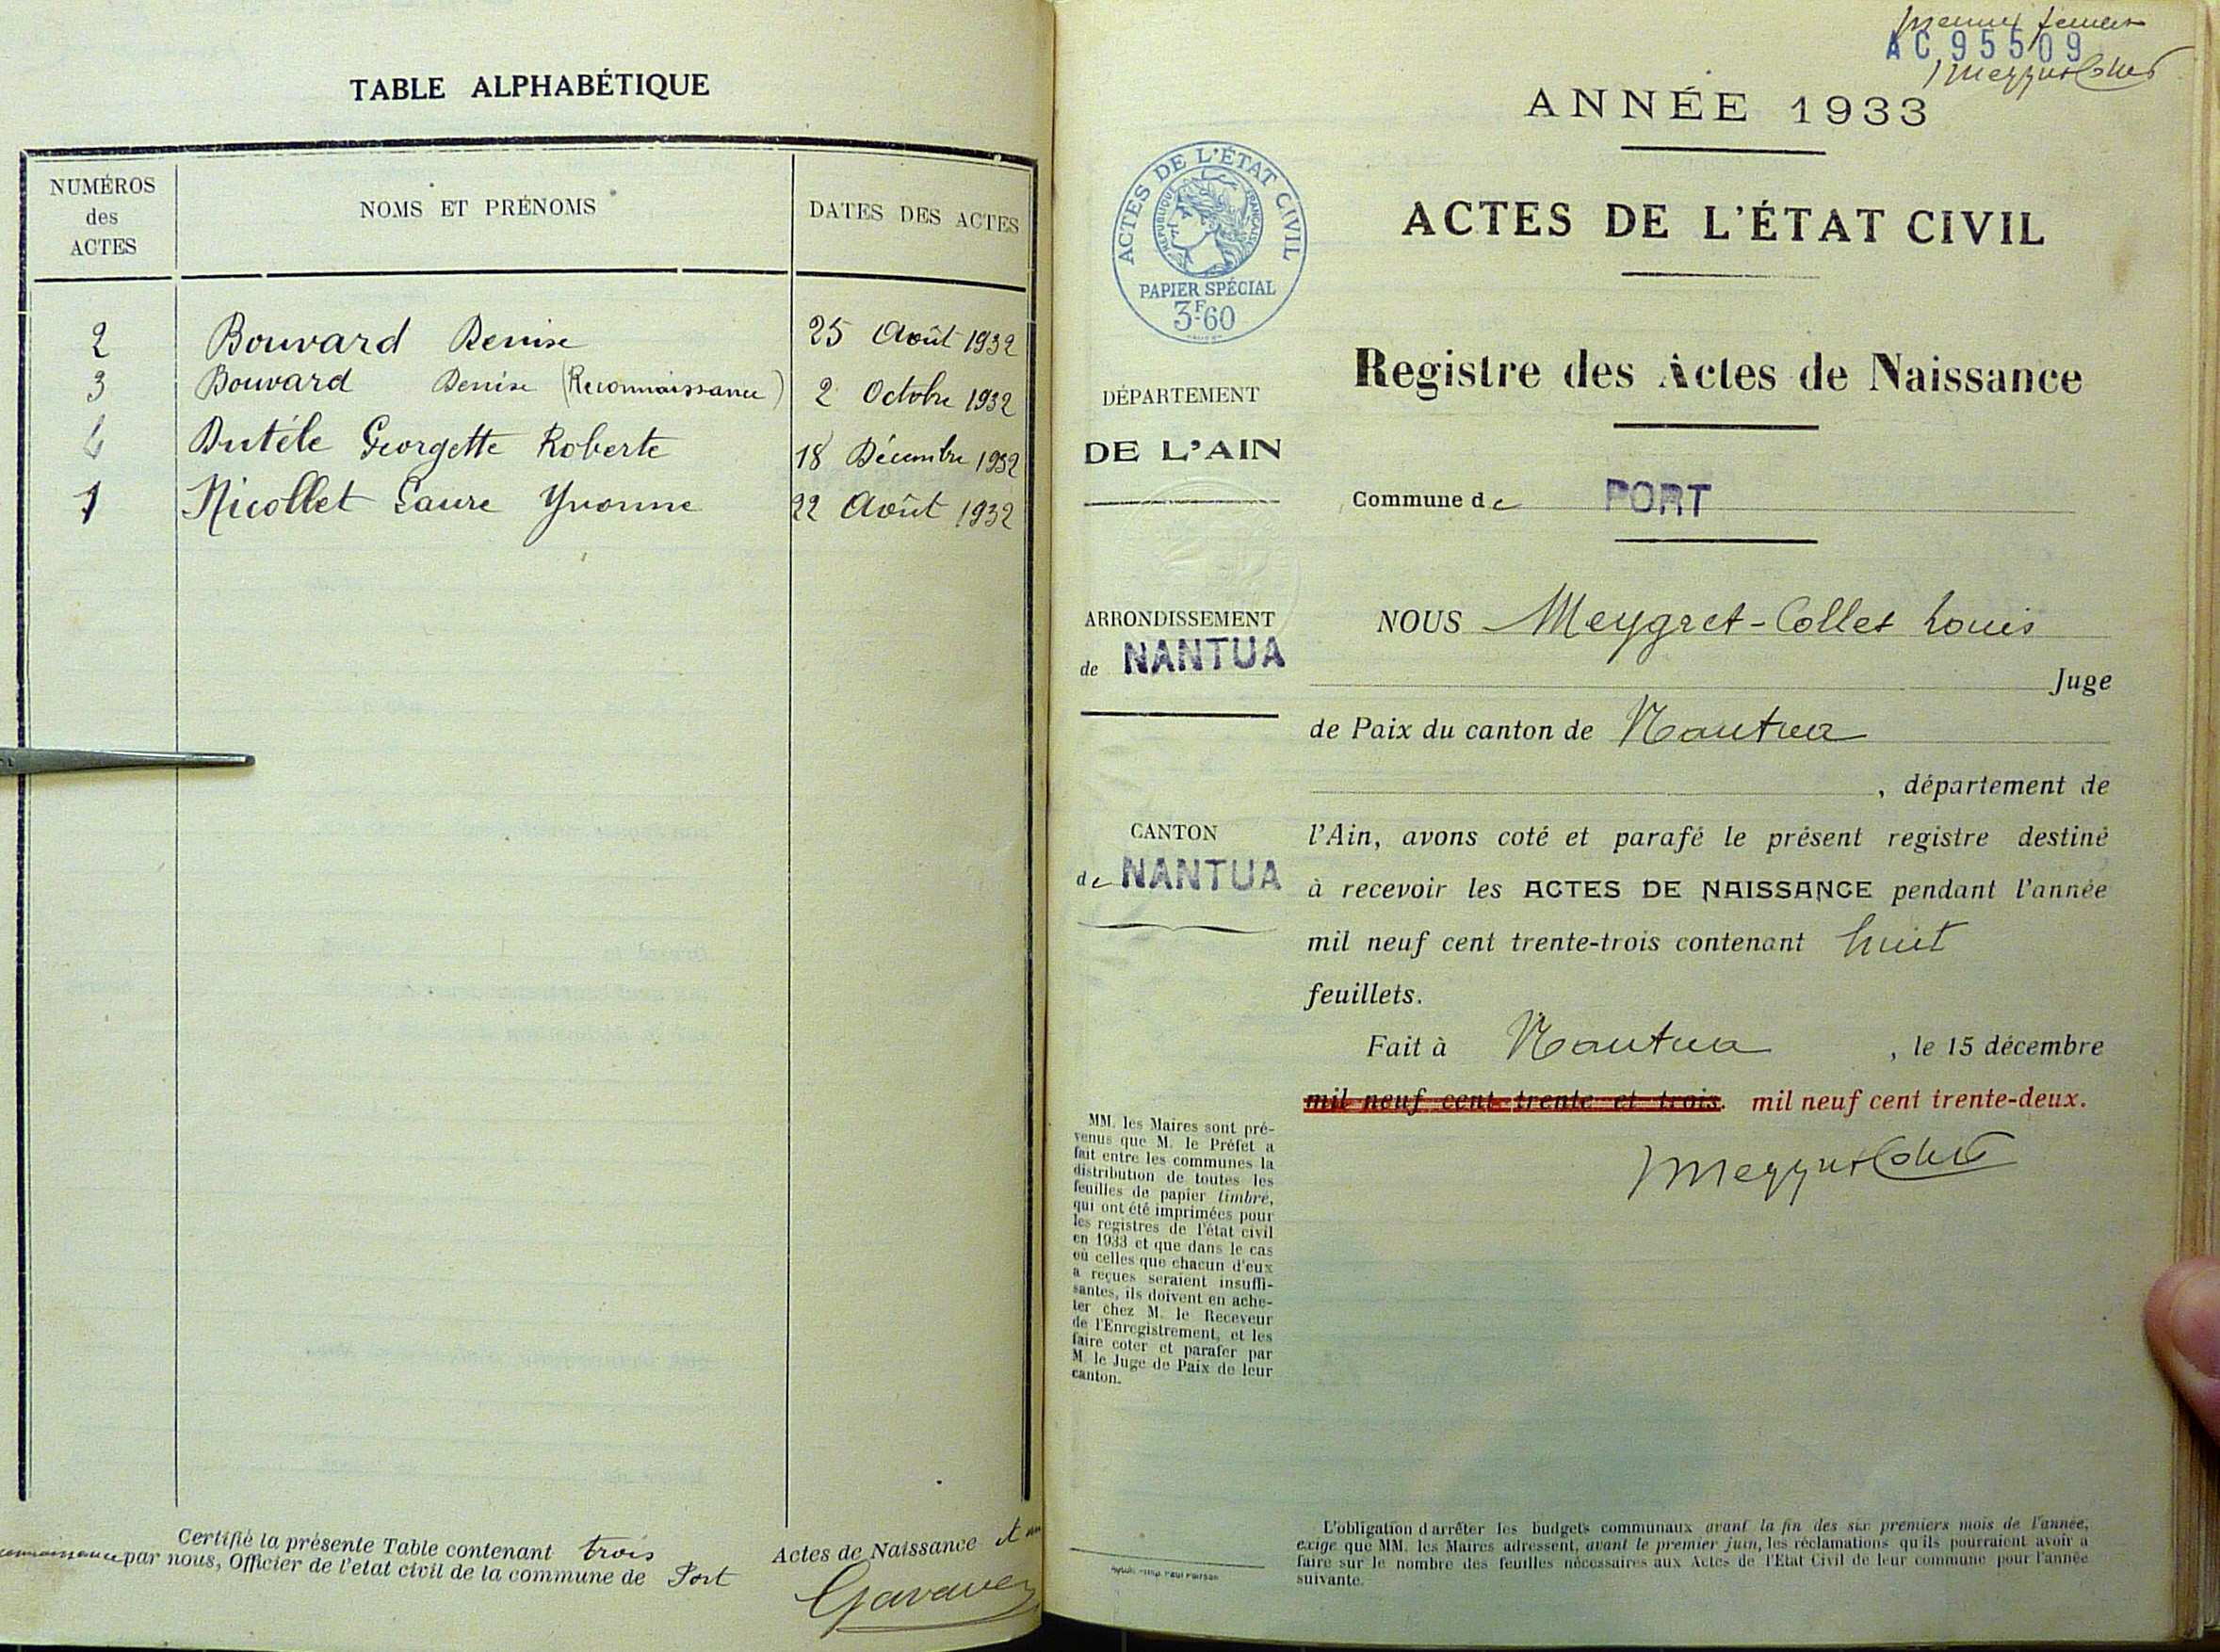 TABLE ALPHABÉTIQUE
NUMÉROS
des
ACTES
NOMS ET PRÉNOMS
DATES DES ACTES
2 Bouvard Denise 25 Août 1932
3 Bouvard Denise (Reconnaissance) 2 Octobre 1932
4 Dutéle Georgette Roberte 18 Décembre 1932
1 Nicollet Laure Yvonne 22 Août 1932
Certifié la présente Table contenant trois Actes de Naissance et
par nous, Officier de l'etat civil de la commune de Port
AC 95509
ANNÉE 1933
ACTES DE L'ÉTAT CIVIL
Registre des Actes de Naissance
Commune de PORT
ACTES DE L'ÉTAT CIVIL
RÉPUBLIQUE FRANÇAISE
PAPIER SPÉCIAL
3F60
DÉPARTEMENT
DE L'AIN
ARRONDISSEMENT
de NANTUA
CANTON
de NANTUA
MM. les Maires sont pré-
venus que M. le Préfet a
fait entre les communes la
distribution de toutes les
feuilles de papier timbré,
qui ont été imprimées pour
les registres de l'état civil
en 1933 et que dans le cas
où celles que chacun d'eux
a reçues seraient insuffi-
santes, ils doivent en ache-
ter chez M. le Receveur
de l'Enregistrement, et les
faire coter et parafer par
M. le Juge de Paix de leur
canton.
NOUS Meygret-Collet Louis
Juge
de Paix du canton de Nantua
, département de
l'Ain, avons coté et parafé le présent registre destiné
à recevoir les ACTES DE NAISSANCE pendant l'année
mil neuf cent trente-trois contenant huit
feuillets.
Fait à Nantua , le 15 décembre
mil neuf cent trente et trois. mil neuf cent trente-deux.
L'obligation d'arrêter les budgets communaux avant la fin des six premiers mois de l'année,
exige que MM. les Maires adressent, avant le premier juin, les réclamations qu'ils pourraient avoir à
faire sur le nombre des feuilles nécessaires aux Actes de l'Etat Civil de leur commune pour l'année
suivante.